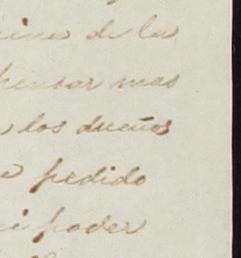 de la
pensar mas
los dueños
pedido
poder